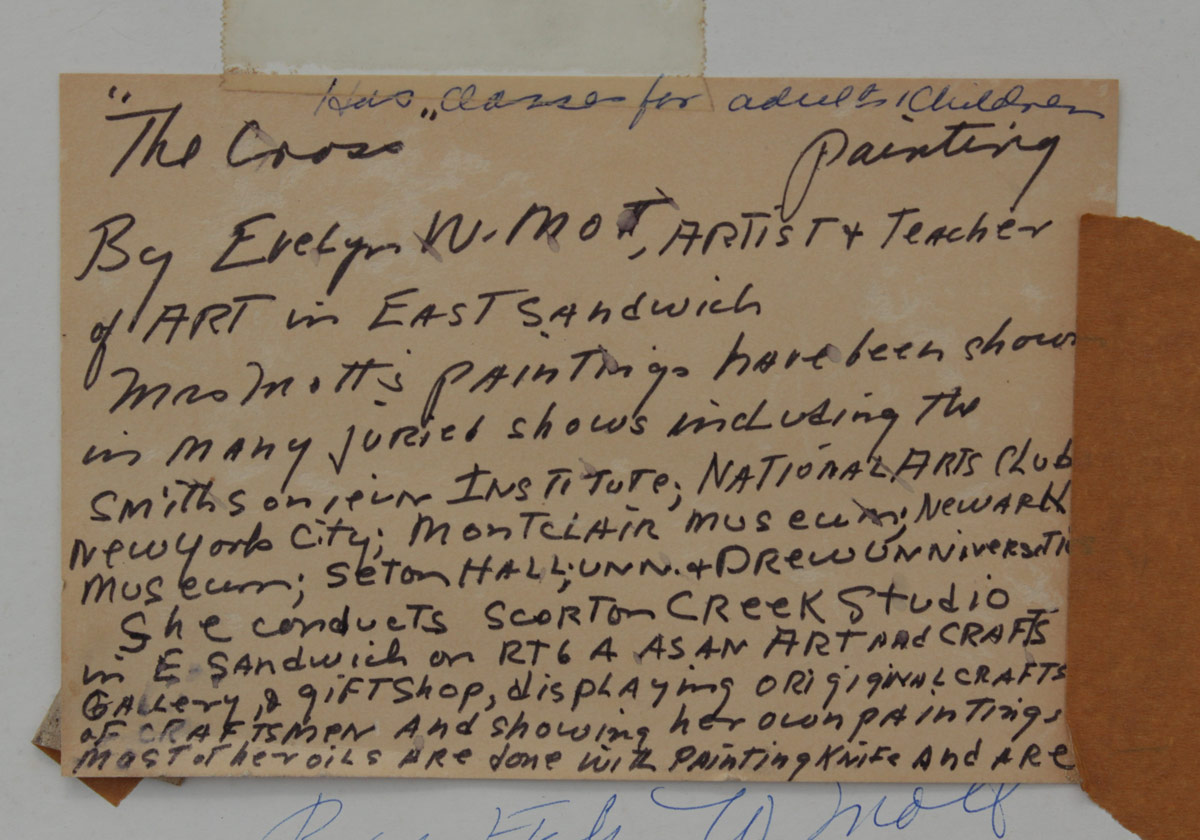 Has classes for adults & Children
"The Cross" painting
By Evelyn W. Mott, ARTIST & Teacher
of ART in EAST SANdwich
Mrs Mott's pAiNTiNgs have been shown
in mANy juried shows iNcLudiNg The
Smithsonieun INSTITUTe; NATIONAL ARTS Club
New York City; MONTCLAIR museum; NewARK
Museum; SetonHALL; UNN. & DRew UNNiversiti
She conducts SCORTON CReeK Studio
in E SANdwich on RT 6 A AS AN ART ANd CRAFTS
GALLery, & giFTShop, dispLAyiNg ORigigiNAL CRAFTS
oF CRAFTSMeN ANd showing her own pAiNTiNgs
most of her oiLs ARe done with pAiNTiNg KNiFe ANd ARe
W Mott